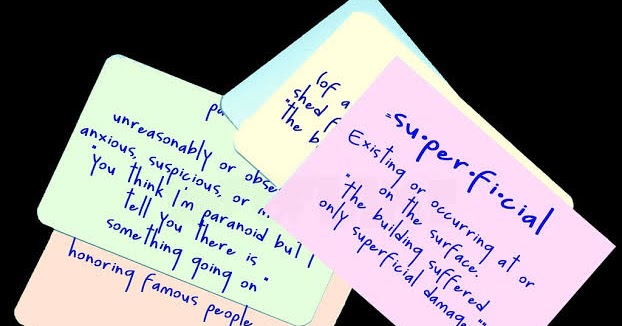 su·per·fi·cial
Existing or occurring at or
on the surface.
"the building suffered
only superficial damage"
(of a
shed
"the b
unreasonably or obse
anxious, suspicious, or
"You think I'm paranoid but I
tell you there is
something going on"
honoring famous people